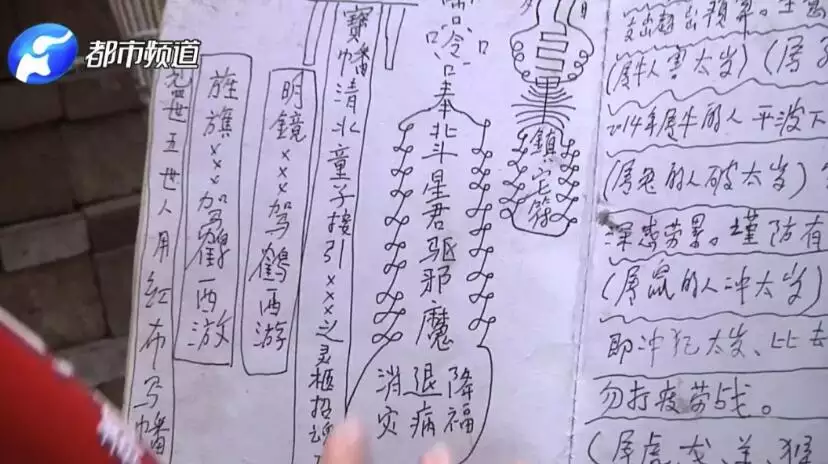 都市频道
五世人用红布写幡
旌旗×××驾鹤西游
明镜×××驾鹤西游
寶幡清北童子接引×××之灵柩招魂
奉北斗星君驱邪魔
消灾
退病
降福
鎮宅符
(属牛人害太岁)(属
2014年属牛的人平波下
(属兔的人破太岁)
深感劳累。谨防有
(属鼠的人冲太岁)
即冲犯太岁、比去
勿打疲劳战。
(属虎、龙、羊、猴